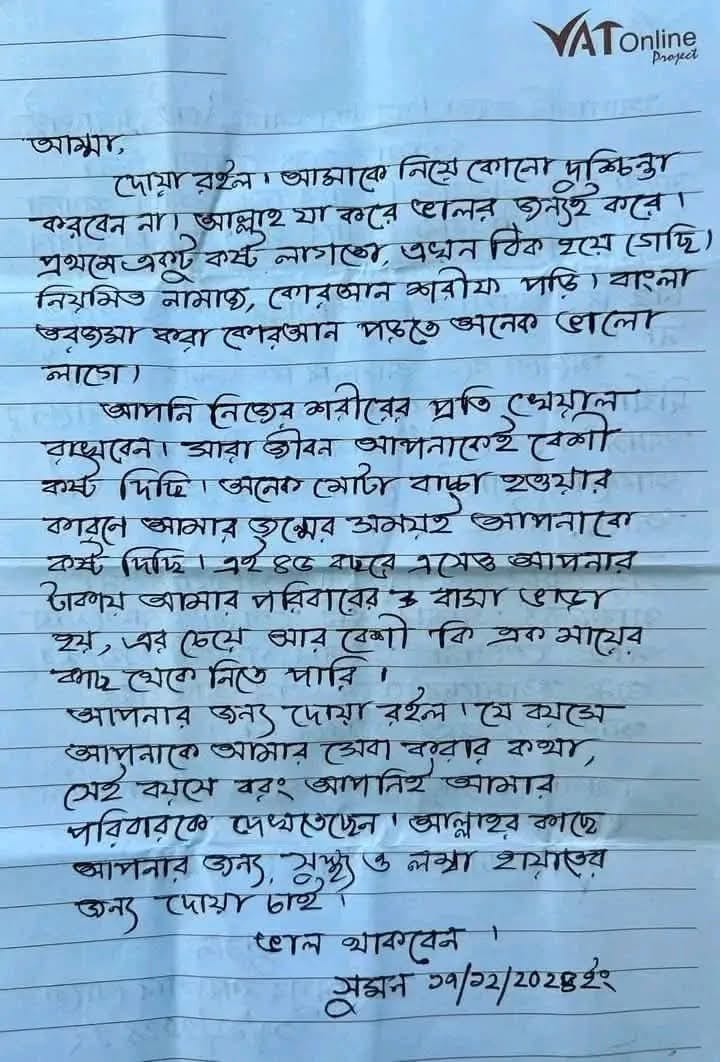 VAT Online
Project
আম্মা,
দোয়া রইল। আমাকে নিয়ে কোনো দুশ্চিন্তা
করবেন না। আল্লাহ যা করে ভালর জন্যই করে।
প্রথমে একটু কষ্ট লাগতো, এখন ঠিক হয়ে গেছি।
নিয়মিত নামাজ, কোরআন শরীফ পড়ি। বাংলা
তরজমা করা কোরআন পড়তে অনেক ভালো
লাগে।
আপনি নিজের শরীরের প্রতি খেয়াল
রাখবেন। সারা জীবন আপনাকেই বেশী
কষ্ট দিছি। অনেক মোটা বাচ্চা হওয়ার
কারনে আমার জন্মের সময়ই আপনাকে
কষ্ট দিছি। এই ৪৫ বছরে এসেও আপনার
টাকায় আমার পরিবারের বাসা ভাড়া
হয়, এর চেয়ে আর বেশী কি এক মায়ের
কাছ থেকে নিতে পারি।
আপনার জন্য দোয়া রইল। যে বয়সে
আপনাকে আমার সেবা করার কথা,
সেই বয়সে বরং আপনিই আমার
পরিবারকে দেখতেছেন। আল্লাহর কাছে
আপনার জন্য, সুস্থ্য ও লম্বা হায়াতের
জন্য দোয়া চাই।
ভাল থাকবেন।
সুমন ১৭/১২/2024ইং